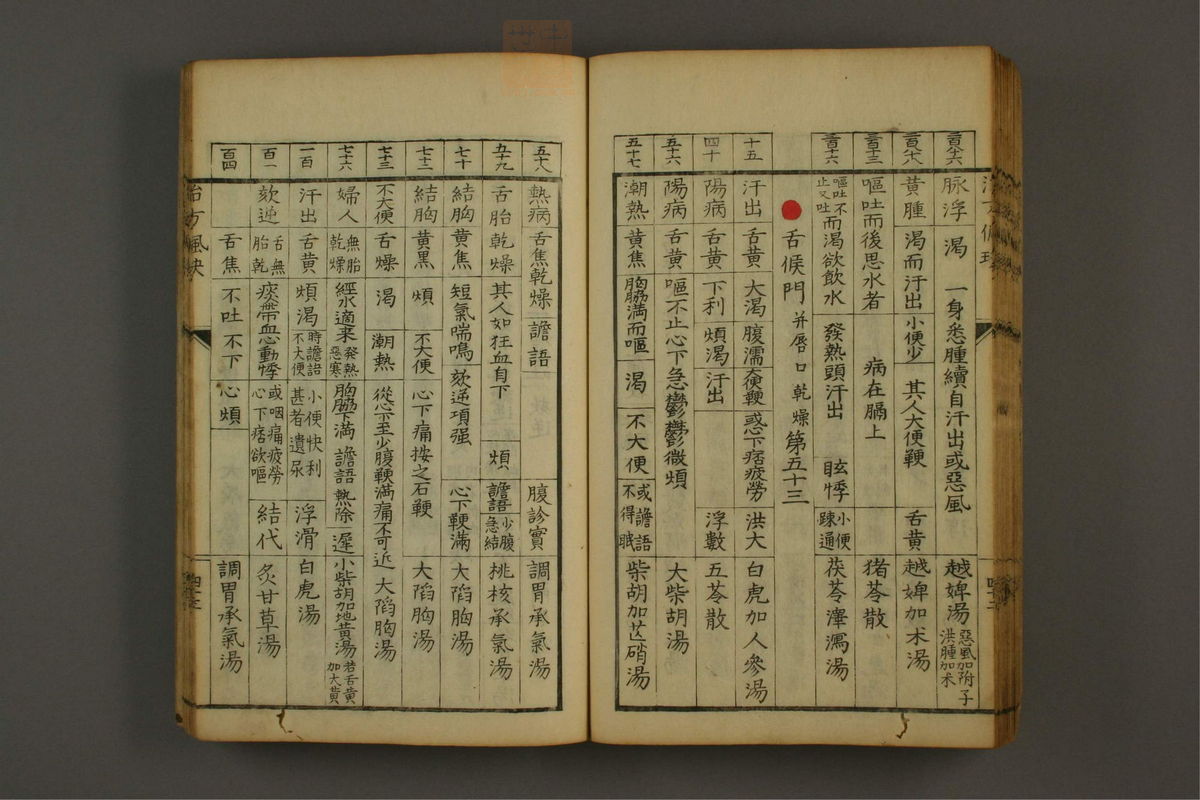 脉浮 渴 一身悉腫續自汗出或惡風 越婢湯 惡風加附子 洪腫加朮
黄腫 渴而汗出 小便少 其人大便鞕 舌黄 越婢加朮湯
百十三 嘔吐而後思水者 病在膈上 猪苓散
百十六 嘔吐不止又吐 而渴欲飲水 發熱頭汗出 眩悸 小便踈通 茯苓澤瀉湯
舌候門 并唇口乾燥 第五十三
十五 汗出 舌黄 大渴 腹濡 大便鞕 惑下痞疲勞 洪大 白虎加人參湯
四十 陽病 舌黄 下利 煩渴 汗出 浮數 五苓散
五十六 陽病 舌黄 嘔不止心下急鬱鬱微煩 大柴胡湯
五十七 潮熱 黄焦 胸脇滿而嘔 渴 不大便 或譫語不得眠 柴胡加芒硝湯
五十八 熱病 舌焦乾燥 譫語 腹診實 調胃承氣湯
五十九 舌胎乾燥 其人如狂血自下 煩 譫語 少腹急結 桃核承氣湯
七十 結胸 黄焦 短氣喘鳴 欬逆項强 心下鞕滿 大陷胸湯
七十二 結胸 黄黑 煩 不大便 心下痛按之石鞕 大陷胸湯
七十三 不大便 舌燥 渴 潮熱 從心下至少腹鞕滿痛不可近 大陷胸湯
七十六 婦人 無胎乾燥 經水適来 發熱惡寒 胸脇下滿 譫語 熱除 遲 小柴胡加地黄湯 若舌黄加大黄
一百 汗出 舌黄 煩渴 時譫語不大便 小便快利甚者遺尿 浮滑 白虎湯
百一 欬逆 舌無胎乾 痰帶血心動悸 或咽痛疲勞心下痞欲嘔 結代 炙甘草湯
百四 舌焦 不吐不下 心煩 調胃承氣湯